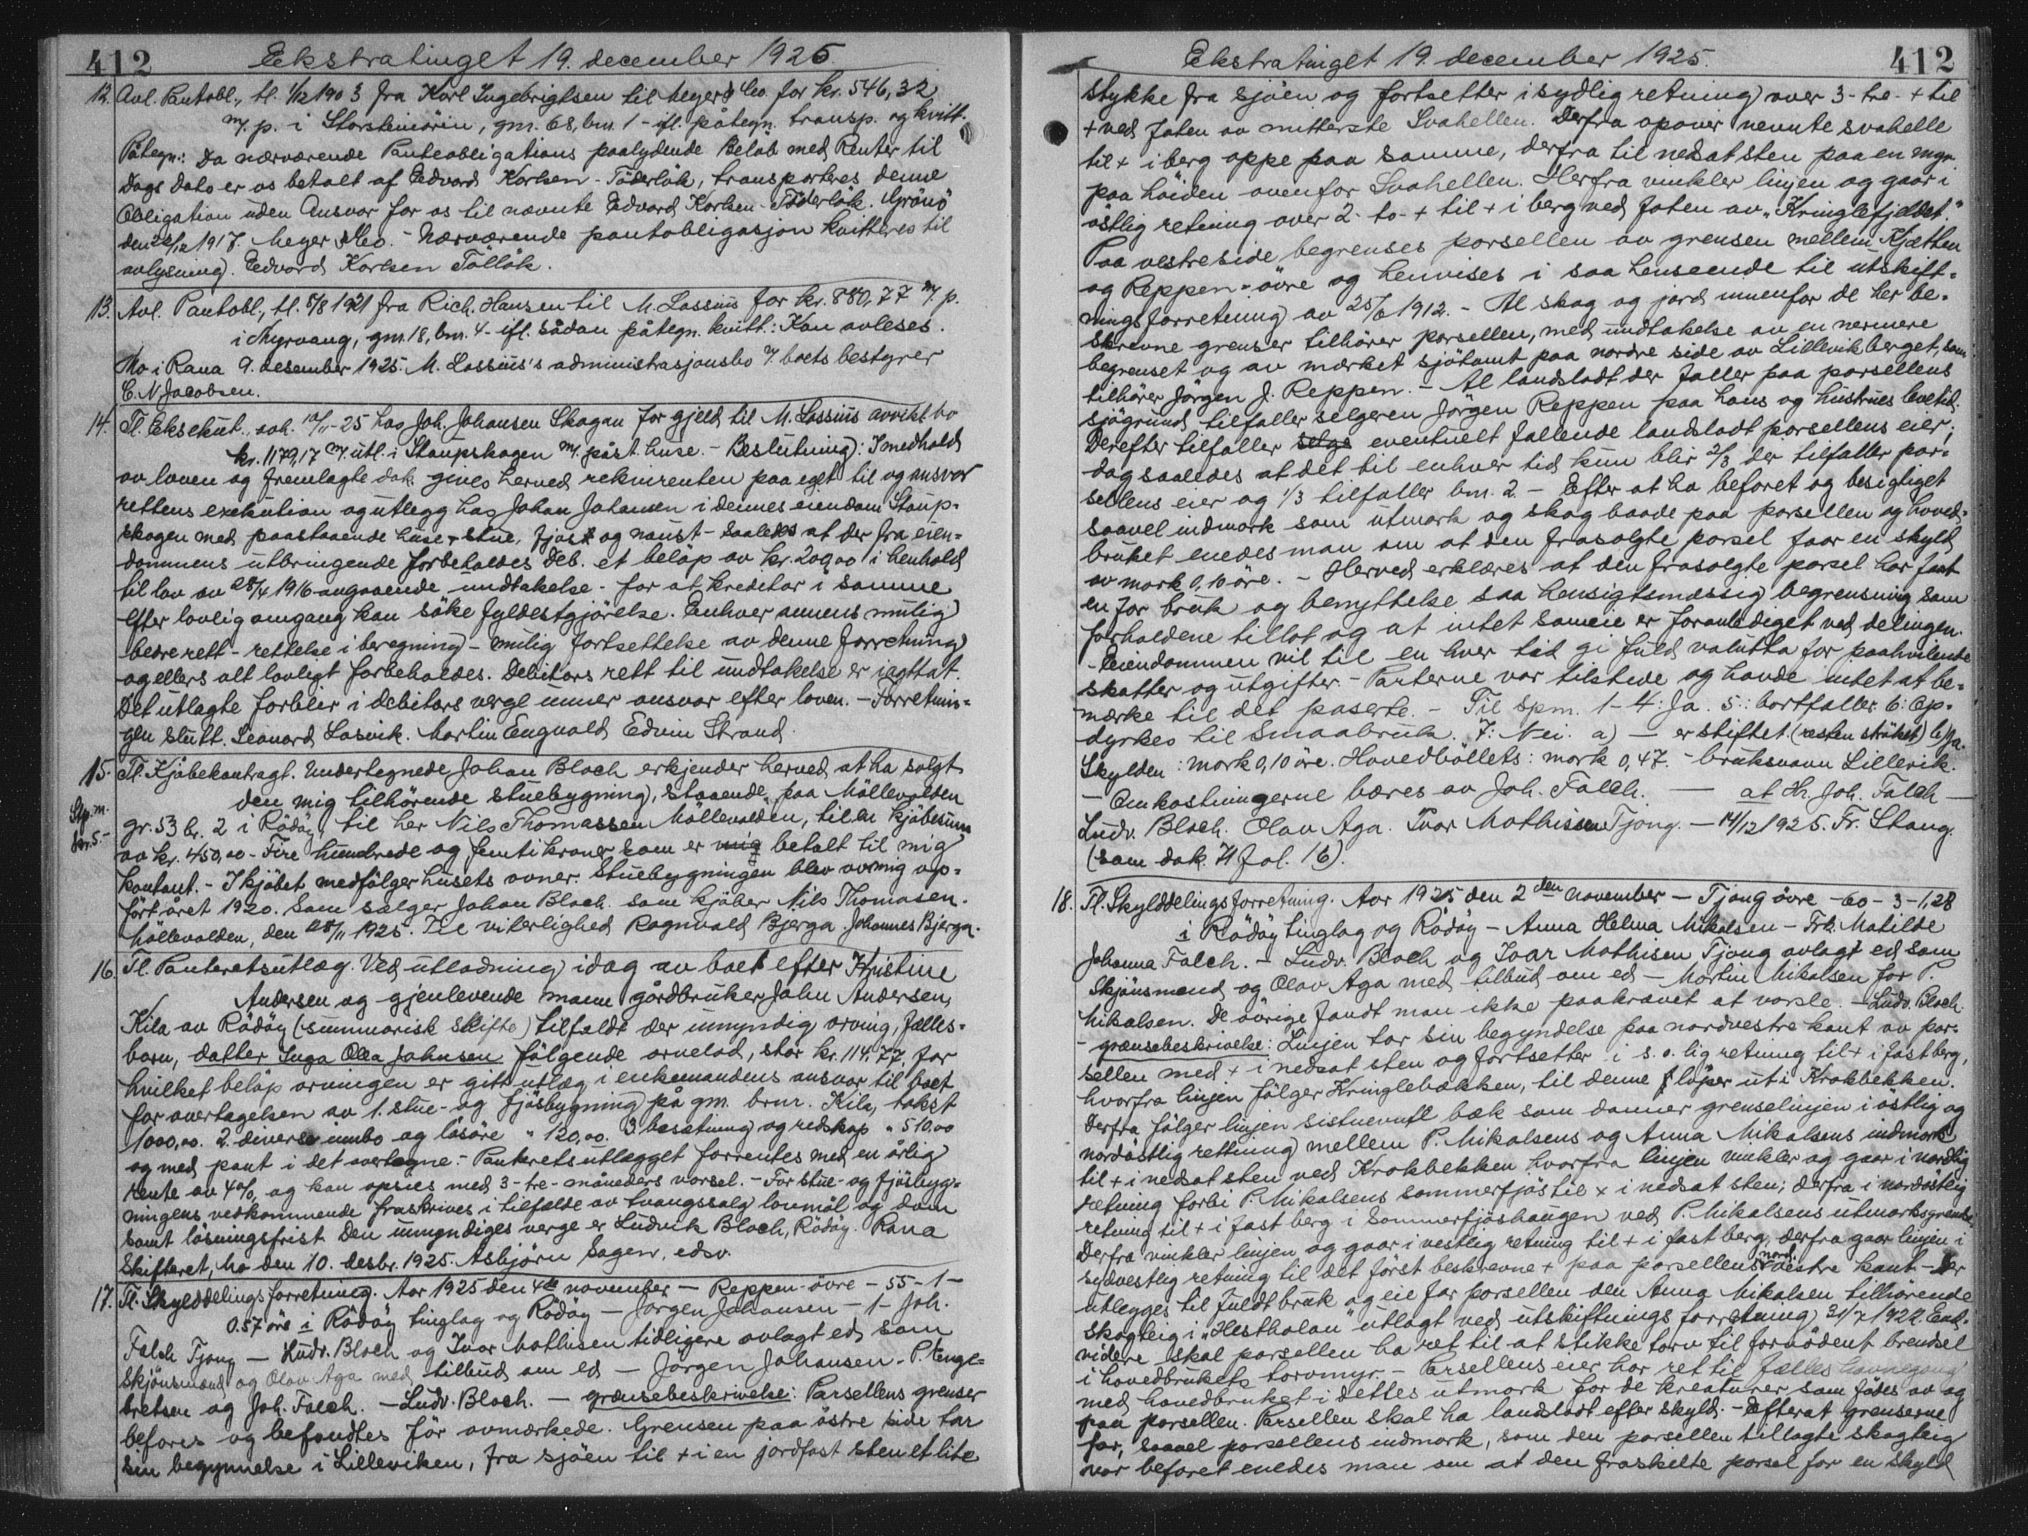 412
Ekstratinget 19. december 1925
12. Avl. Pantobl., tl. 1/12 1903 fra Karl Ingebrigtsen til Meyer & Co. for kr. 546,32
m/. p. i Storsteinörin, gnr. 68, bnr. 1 - ifl. påtegn. transp. og kvitt.
Påtegn.: Da nærværende Panteobligations paalydende Beløb med Renter til
Dags Dato er os betalt af Edvard Karlsen - Töderlök, transporteres denne
Obligation uden Ansvar for os til nævnte Edvard Karlsen - Töderlök. Grönö
den 22/12 1917. Meyer & Co. - Nærværende pantobligasjon kvitteres til
avlysning. Edvard Karlsen Töllök.
13. Avl. Pantobl., tl. 5/8 1921 fra Rich. Hansen til M. Lossius for kr. 880,77 m/. p.
i Myrvang, gnr. 18, bnr. 4. - ifl. sådan påtegn. kvitt.: Kan avleses.
Mo i Rana 9. desember 1925. M. Lossius's administrasjonsbo v/. boets bestyrer
C. N Jacobsen.
14. Tl. Eksekut. avh. 10/11-25 hos Joh. Johansen Skogan for gjeld til M. Lossius avviklbo
kr. 1179,17 m/. utl. i Staupskogen m/. påst. huse. - Beslutning: I medhold
av loven og fremlagte dok. gives herved rekvirenten paa eget til og ansvar
rettens exekution og utlegg hos Johan Johansen i dennes eiendom Staup-
skogen med paastaaende huse - stue, fjös og naust - saaledes at der fra eien-
dommens utbringende forbeholdes Deb. et beløp av kr. 200,00 i henhold
til lov av 28/4 1916 angaaende undtakelse - for at kreditor i samme
efter lovlig omgang kan söke fyldestgjörelse. Enhver annens mulig
bedre rett - rettelse i beregning - mulig fortsettelse av denne forretning
og ellers alt lovligt forbeholdes. Debitors rett til undtakelse er iagttat.
Det utlagte forblir i debitors verge unner ansvar efter loven. - Forretnin-
gen slutt. Leonard Losvik. Martin Engvald Edvin Strand.
15. Tl. Kjöbekontragt. Undertegnede Johan Bloch erkjender herved at ha solgt
Stp. m.
kr. 5.-
den mig tilhörende stuebygning, staaende paa Möllevolden
gr. 53 br. 2 i Rödöy, til her Nils Thomassen Möllevolden, til en kjöbesum
av kr. 450,00 - Fire hundrede og femti kroner som er mig betalt til mig
kontant. - I kjöbet medfölger husets ovner. Stuebygningen blev av mig op-
fört året 1920. Som sælger Johan Bloch. som kjöber Nils Thomasen.
Möllevolden, den 28/11 1925. Til viterlighed Ragnvald Bjerga. Johannes Bjerga.
16. Tl. Panteretsutlæg. Ved utlodning idag av boet efter Kristine
Andersen og gjenlevende mann gårdbruker John Andersen,
Kila av Rödöy (summarisk skifte) tilfaldt der umyndig arving, fælles-
barn, datter Inga Olea Johnsen følgende arvelod, stor kr. 114.77, for
hvilket beløp arvingen er gitt utlæg i enkemandens ansvar til boet
for overtagelsen av 1. stue- og fjösbygning på gnr. bnr. Kila, takst
1000,00. 2. diverse inbo og lösöre " 120,00. 3 besætning og redskap " 510.00
og med pant i det overtagne. - Panteretsutlægget forrentes med en årlig
rente av 4%, og kan opsies med 3-tre-måneders varsel. - For stue- og fjösbyg-
ningens vedkommende fraskrives i tilfælde av tvangssalg lovmål og dom
samt lösningsfrist. Den umyndiges verge er Ludvik Bloch, Rödöy. Rana
Skifteret, Mo den 10. desbr. 1925. Asbjörn Sagen, edsv.
17. Tl. Skylddelingsforretning. Aar 1925 den 4de november - Reppen-övre - 55 - 1 -
0.57 öre i Rödöy tinglag og Rödöy - Jørgen Johansen - 1 - Joh.
Falch Tjong - Ludv. Bloch og Ivar Mathisen tidligere avlagt ed som
skjönsmænd og Olav Aga med tilbud om ed - Jørgen Johansen - P. Enge-
bretsen og Joh. Falch. - Ludv. Bloch. - grænsebeskrivelse: Parsellens grenser
befares og befandtes för avmærkede. Grensen paa östre side tar
sin begynnelse i Lilleviken, fra sjöen til + i en jordfast sten et lite
412
Ekstratinget 19. december 1925.
stykke fra sjöen og fortsetter i sydlig retning over 3-tre-+ til
+ ved foten av mitterste Svahellen. Derfra opover nevnte svahelle
til + i berg oppe paa samme, derfra til nedsat sten paa en myr
paa höiden ovenfor Svahellen. Herfra vinkler linjen og gaar i
østlig retning over 2-to-+ til + i berg ved foten av "Kringlefjeldet."
Paa vestre side begrenses parsellen av grensen mellem Kjæthen
og Reppen-övre og henvises i saa henseende til utskift-
ningsforretning av 25/6 1912. - Al skog og jord innenfor de her be-
skrevne grenser tilhörer parsellen, med undtakelse av en nermere
begrenset og av mærket sjötomt paa nordre side av Lillevikberget, som
tilhörer Jörgen J. Reppen. - Al landslodt der faller paa parsellens
sjögrund tilfaller selgeren Jörgen Reppen paa hans og hustrues levetid.
Derefter tilfaller selge eventuelt fallende landslodt parsellens eier;
dog saaledes at det til enhver tid kun blir 2/3 der tilfaller par-
sellens eier og 1/3 tilfaller bnr. 2. - Efter at ha befaret og besigtiget
saavel indmark som utmark og skog baade paa parsellen og hoved-
bruket enedes man om at den frasolgte parsel faar en skyld
av mark 0,10 öre. - Herved erklæres at den frasolgte parsel har faat
en for bruk og benyttelse saa hensigtsmæssig begrensning som
forholdene tillot og at intet sameie er foranlediget ved delingen.
- Eiendommen vil til en hver tid gi fuld valutta for paahvilende
skatter og utgifter. - Parterne var tilstede og havde intet at be-
mærke til det paserte. - Til spm. 1 - 4: Ja. 5: bortfaller. 6: Op-
dyrkes til Smaabruk. 7: Nei. a) - er stiftet (resten ströket) b) Ja.
Skylden: mark 0,10 öre. Hovedböllets: mark 0,47. - bruksnavn Lillevik.
- Omkostningerne bæres av Joh. Falch. - at Hr. Joh. Falch -
Ludv. Bloch. Olav Aga. Ivar Mathisen Tjong. - 14/12 1925. Fr. Stang.
(som dok. 7 fol. 16).
18. Tl. Skylddelingsforretning. Aar 1925 den 2den november - Tjong övre - 60 - 3 - 1,28
i Rödöy tinglag og Rödöy - Anna Helma Mikalsen - Frk. Matilde
Johanna Falch. - Ludv. Bloch og Ivar Mathisen Tjong avlagt ed som
skjönsmend og Olav Aga med tilbud om ed - Martin Mikalsen for P.
Mikalsen. De övrige fandt man ikke paakrævet at varsle. - Ludv. Bloch.
- grænsebeskrivelse: Linjen tar sin begyndelse paa nordvestre kant av par-
sellen med + i nedsat sten og fortsetter i s. o. lig retning til + i fast berg,
hvorfra linjen fölger Kringlebækken, til denne löper ut i Krokbekken.
Derfra fölger linjen sistnevnte bæk som danner grenselinjen i østlig og
nordöstlig rettning mellem P. Mikalsens og Anna Mikalsens indmark
til + i nedsat sten ved Krokbekken hvorfra linjen vinkler og gaar i nordlig
retning forbi P. Mikalsens sommerfjös til + i nedsat sten; derfra i nordöstlig
retning til + i fast berg i Sommerfjöshaugen ved P. Mikalsens utmarksgrense.
Derfra vinkler linjen og gaar i vestlig retning til + i fast berg, derfra gaar linjen i
sydvestlig retning til det först beskrevne + paa parsellens nordvestre kant - Her
utlegges til fuldt bruk og eie for parsellen den Anna Mikalsen tilhörende
skogteig i "Hestholan" utlagt ved utskiftningsforretning 31/7 1922. End-
videre skal parsellen ha ret til at stikke torv til fornödent brendsel
i hovedbrukets torvmyr. - Parsellens eier har ret til fælles havnegang
med hovedbruket i dettes utmark for de kreaturer som födes av og
paa parsellen. Parsellen skal ha landslodt efter skyld. - Efterat grenserne
for, saavel parsellens indmark, som den parsellen tillagte skogteig
var befaret enedes man om at den fraskilte parsel for en skyld